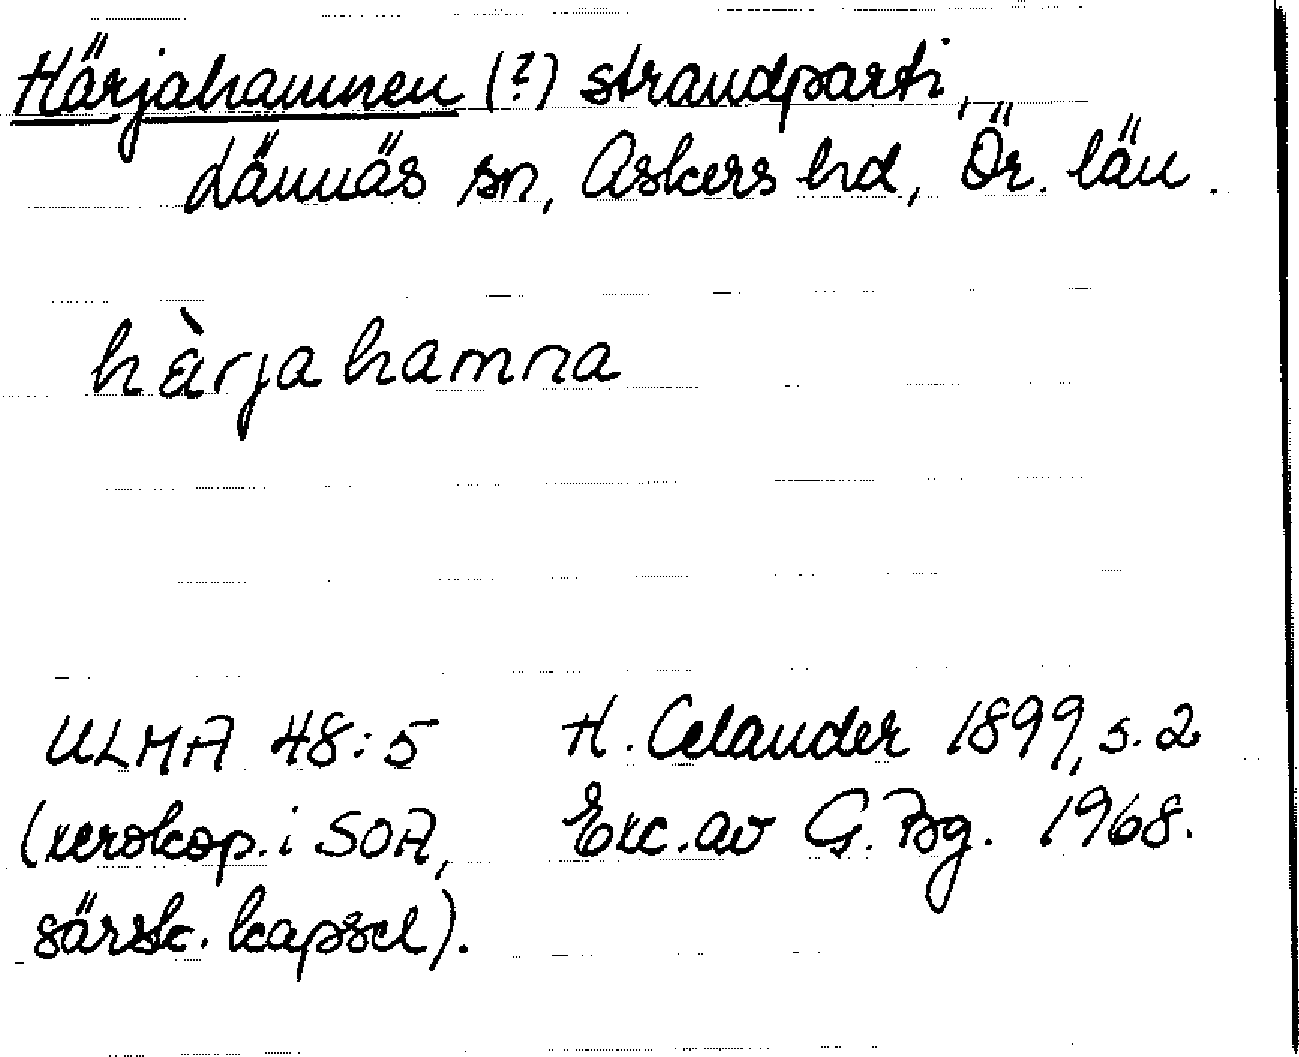 Härjahamnen (?) strandparti,
Lännäs sn, Askers hd, Ör. län.
hàrjahamna
ULMA 48:5 H. Celander 1899, s. 2
(xerokop. i SOA, Exc. av G. Bg. 1968.
särsk. kapsel).